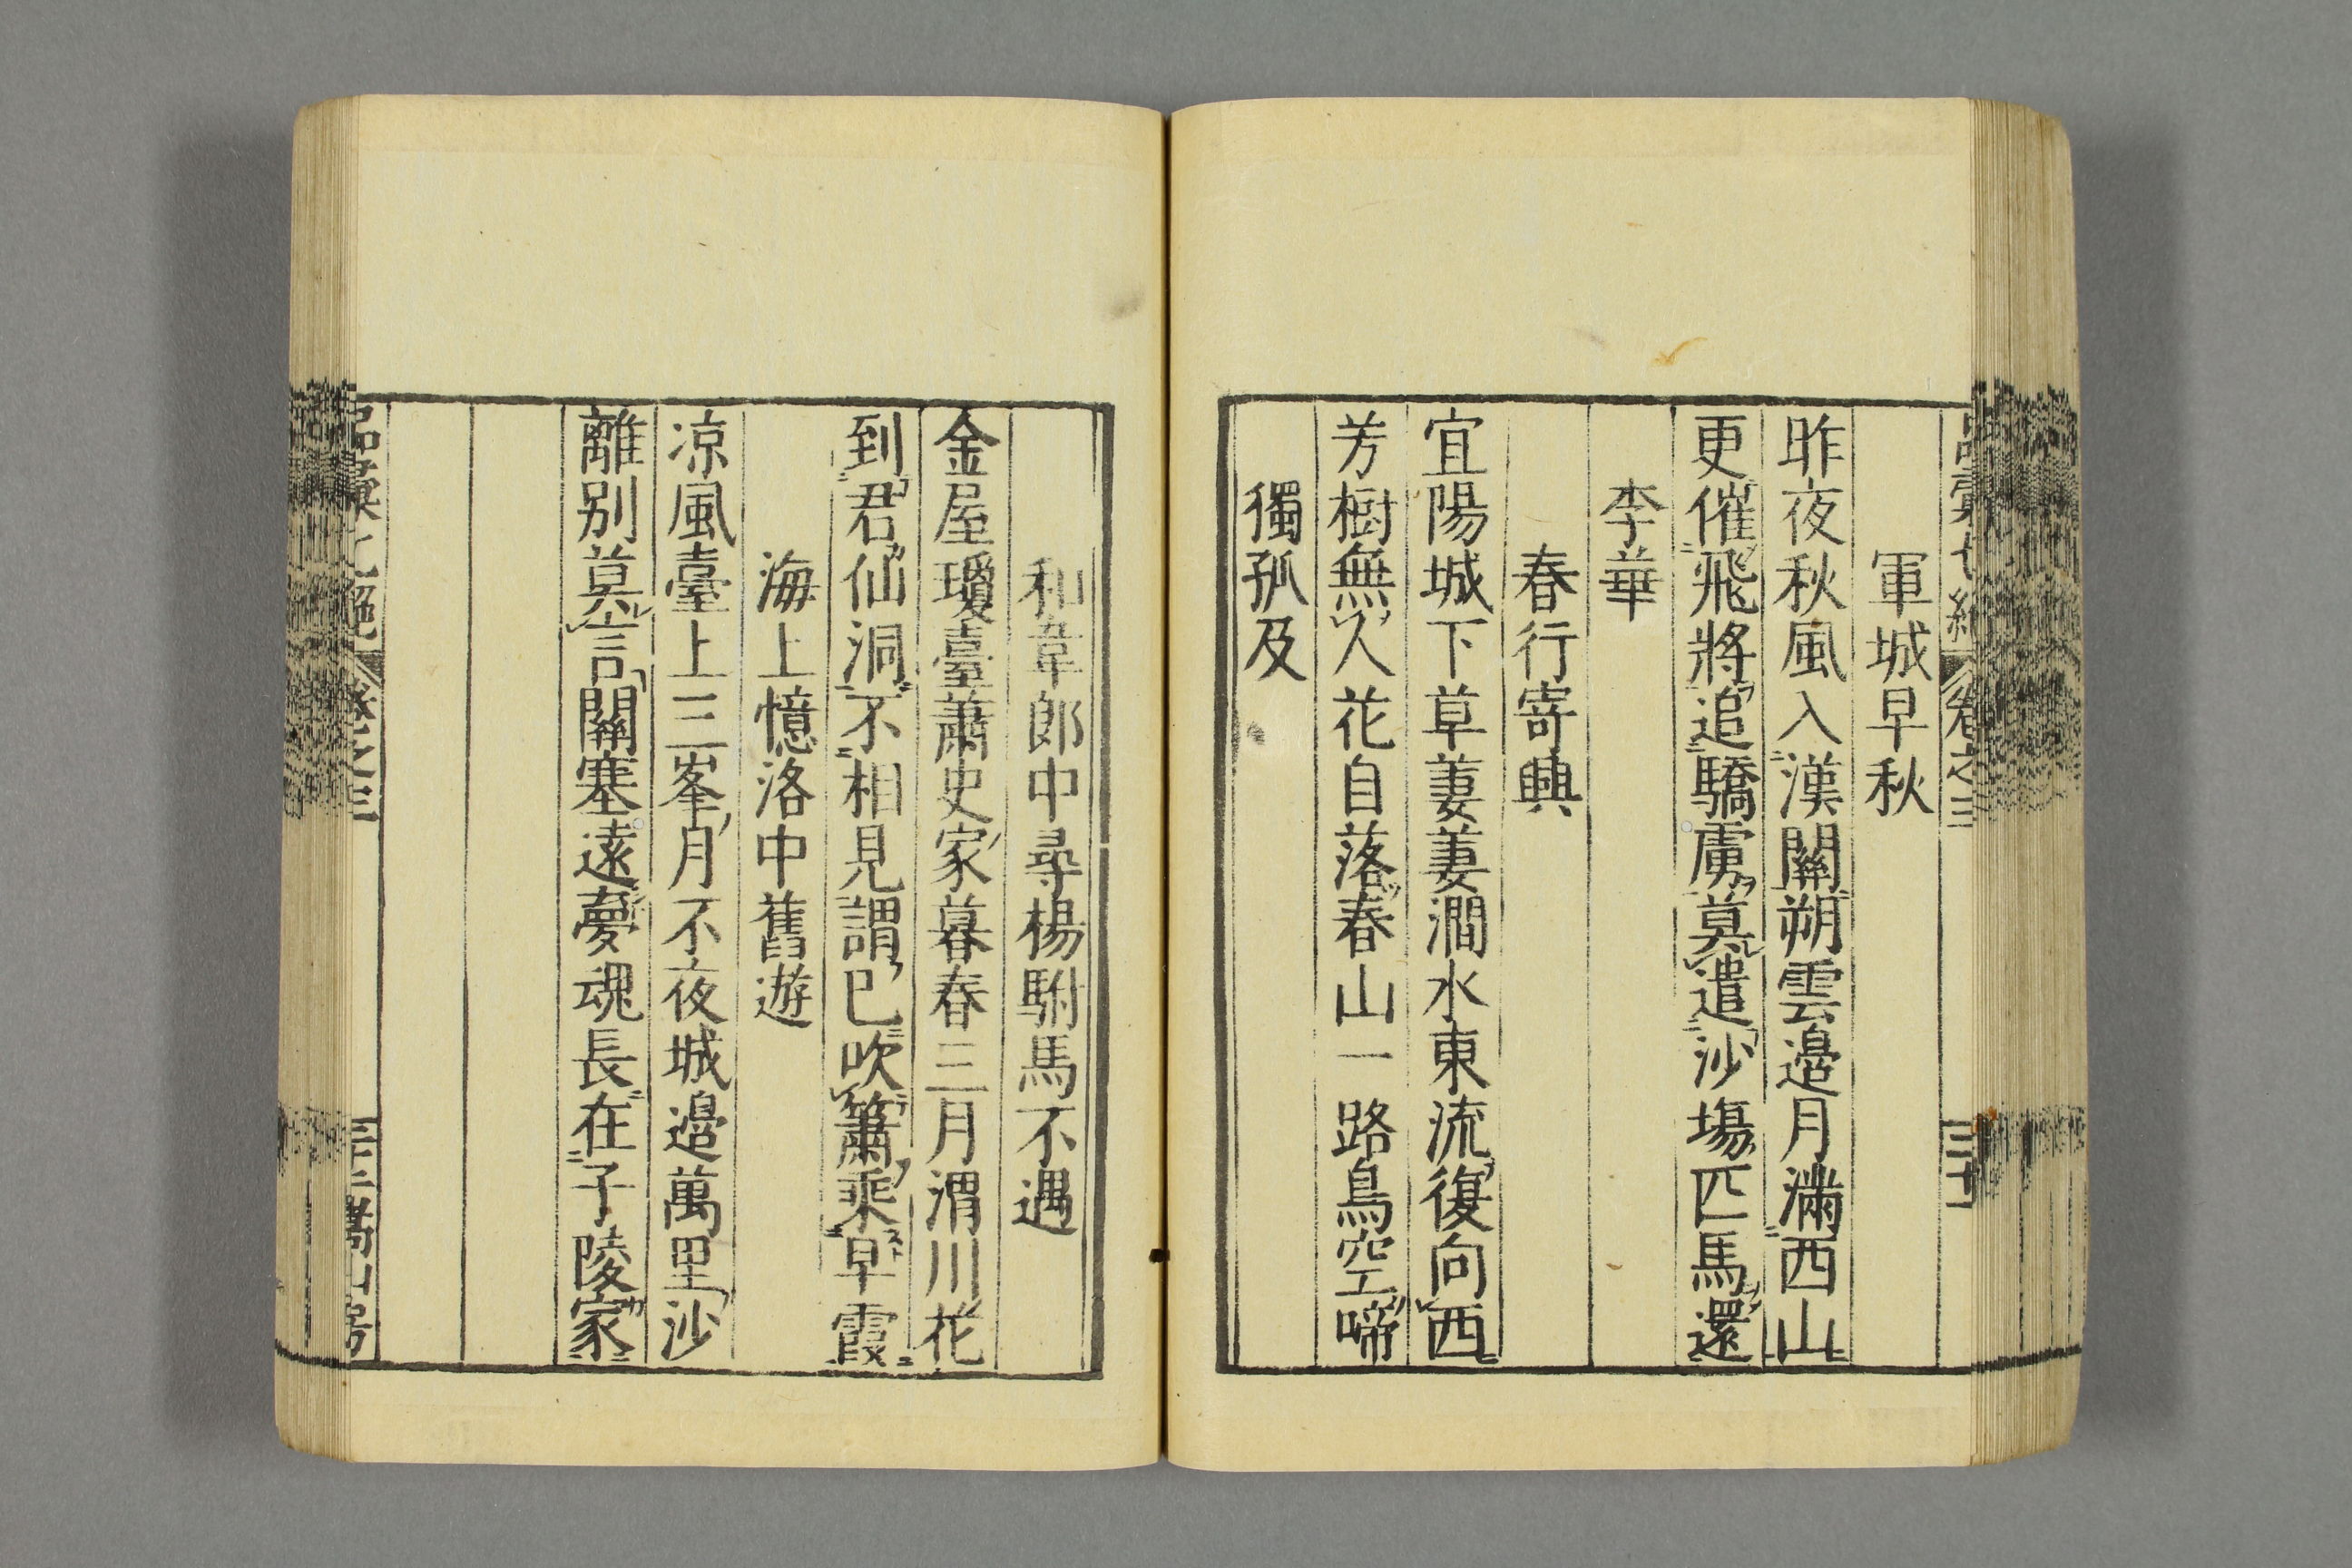 軍城早秋
昨夜秋風入漢關朔雲邉月滿西山
更催飛將追驕虜莫遣沙塲匹馬還
李華
春行寄興
宜陽城下草萋萋澗水東流復向西
芳樹無人花自落春山一路鳥空啼
獨孤及
和韋郎中尋楊駙馬不遇
金屋瓊臺蕭史家暮春三月渭川花
到君仙洞不相見謂已吹簫乘早霞
海上憶洛中舊遊
凉風臺上三峯月不夜城邉萬里沙
離别莫言關塞遠夢魂長在子陵家